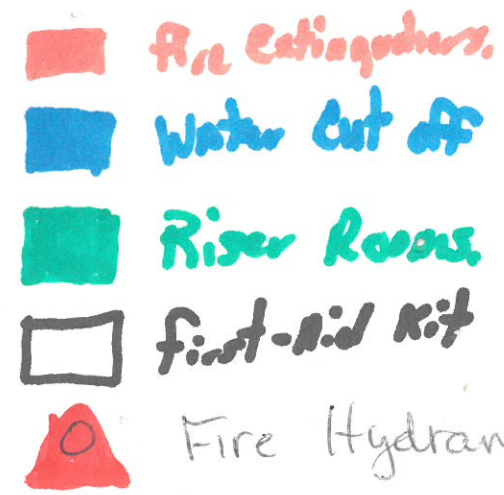 Fire Extinguishers.
Water Cut off
Riser Rooms.
first-Aid Kit
Fire Hydran